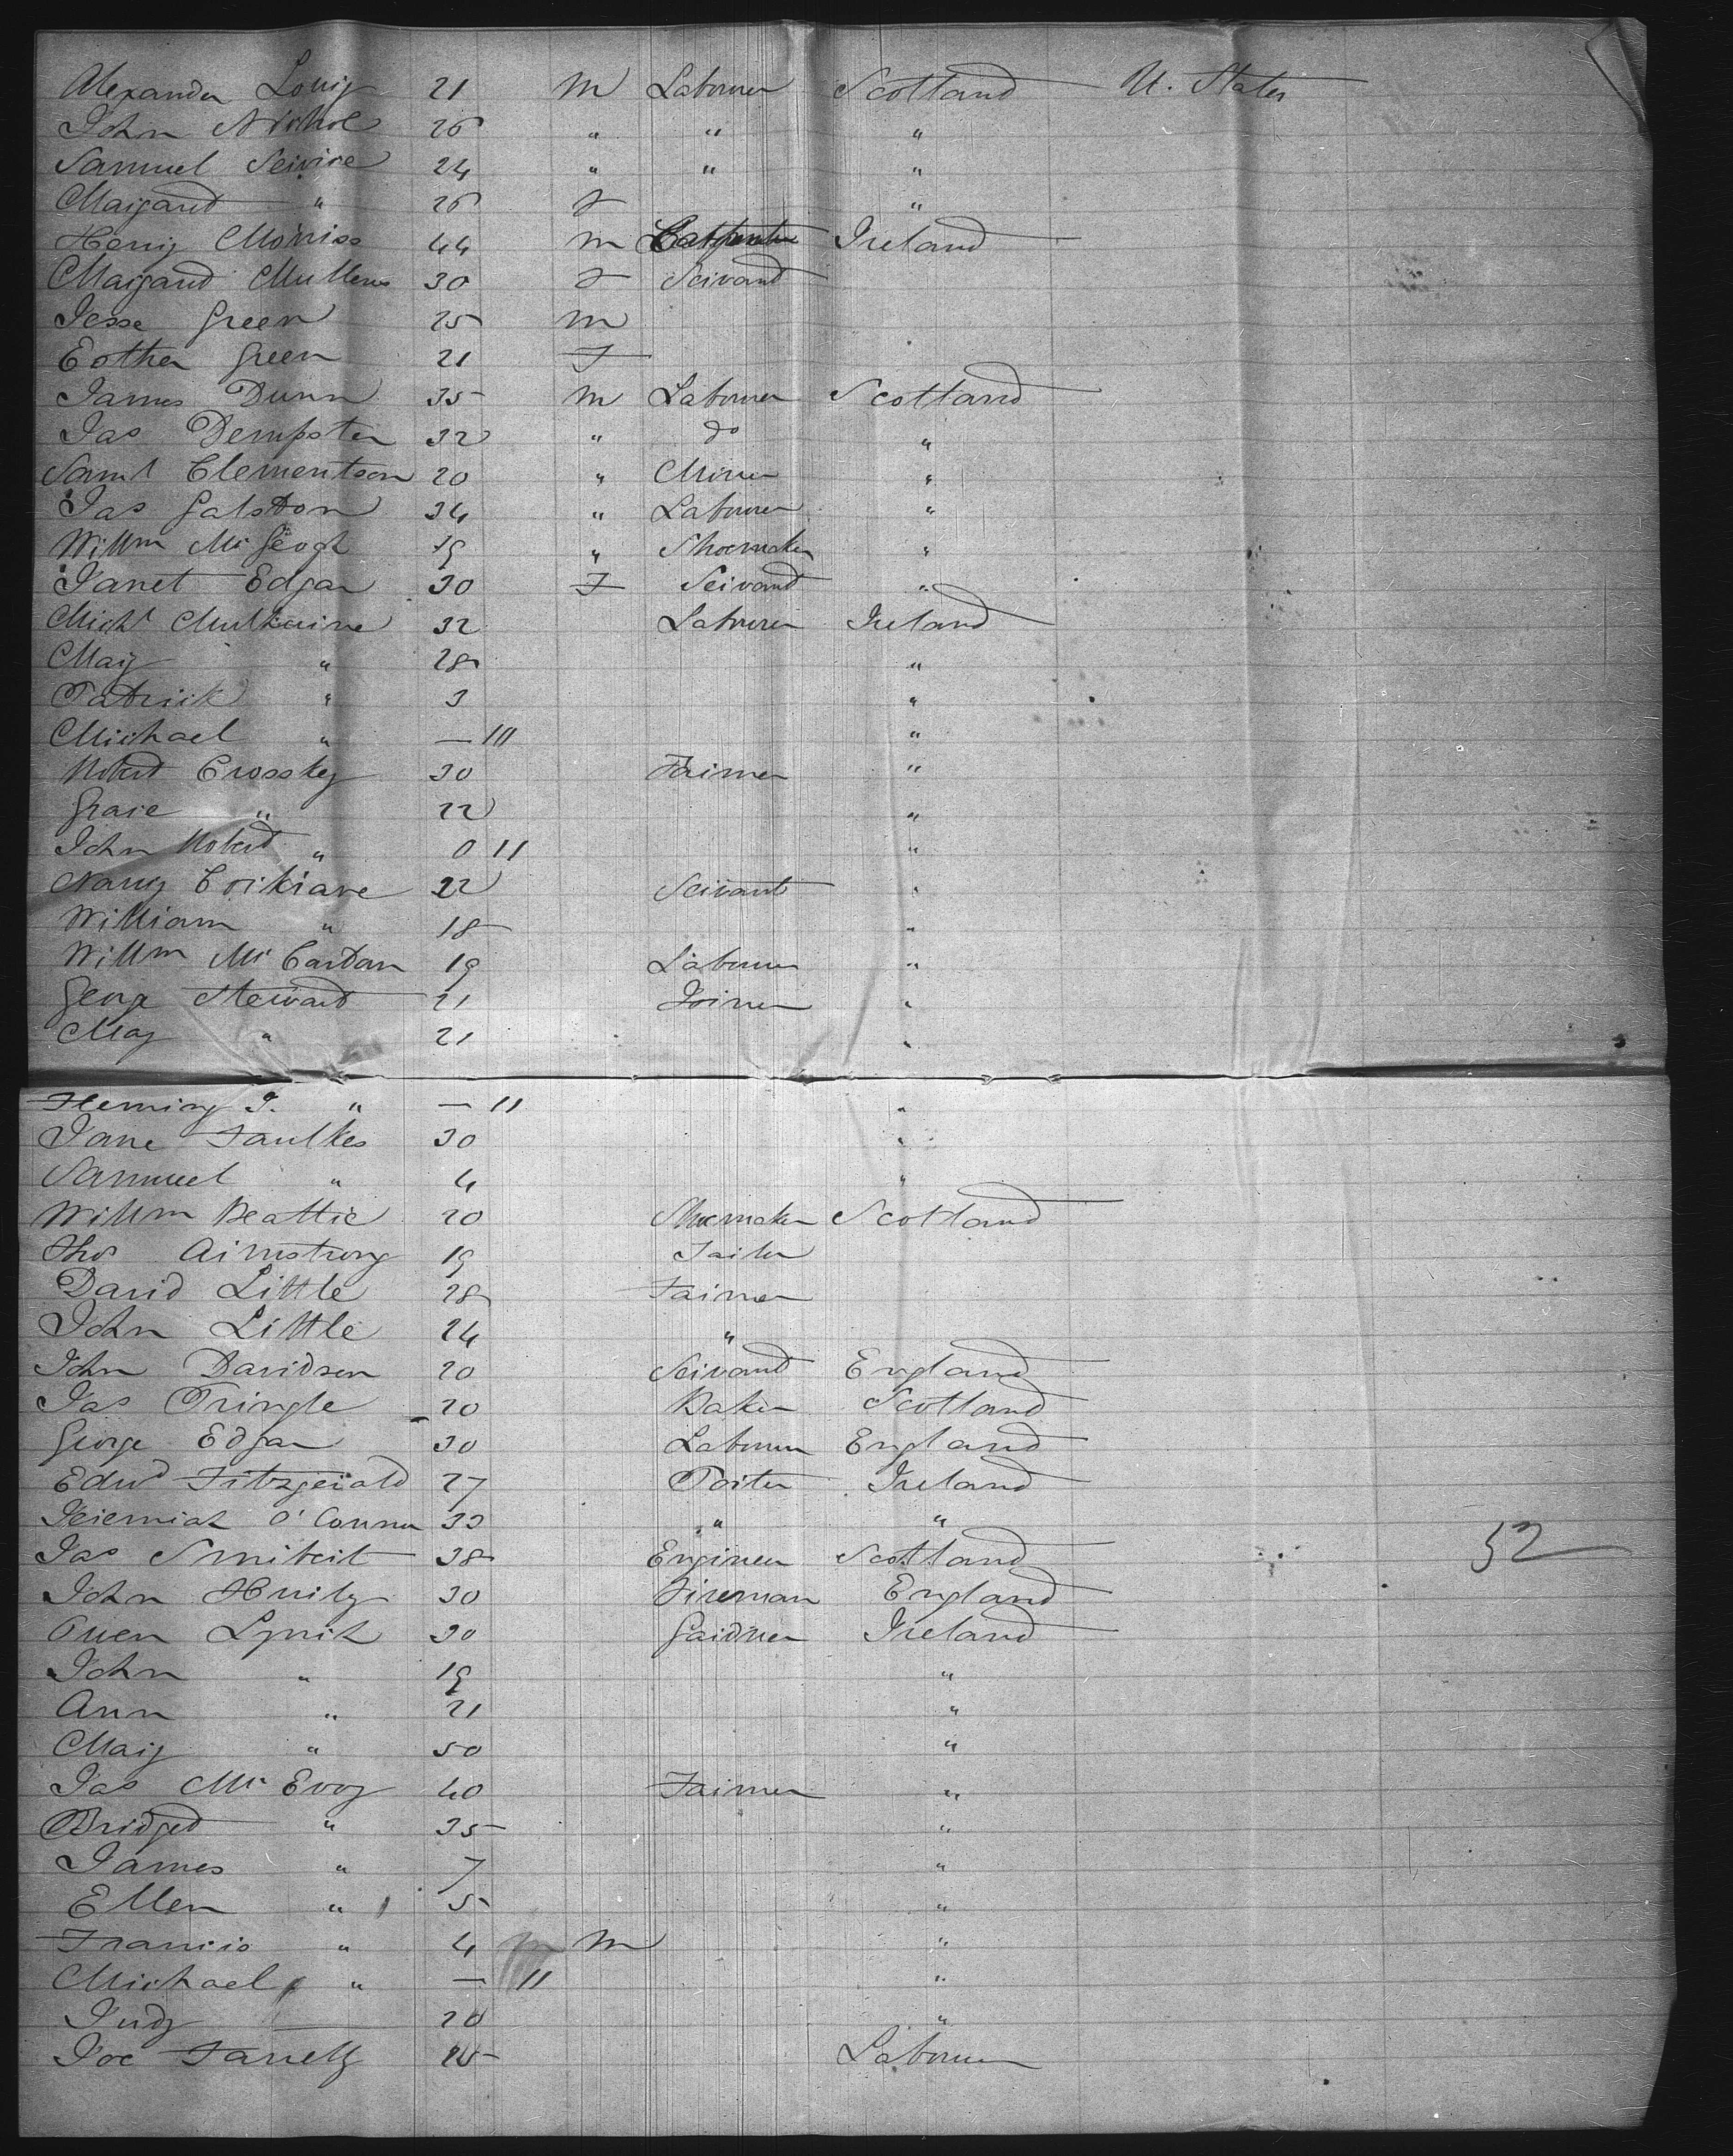 Alexander Lowry 21 m Labourer Scotland U. States
John Nichol 26 " " "
Samuel Service 24 " " "
Margaret " 26 f "
Henry Morriss 44 m Carpenter Ireland
Margaret Mullens 30 f Servant
Jesse Green 25 m
Esther Green 21 F
James Dunn 35 m Labourer Scotland
Jas Dempster 32 " do "
Saml Clementson 20 " Miner "
Jas Galston 34 " Labourer "
Willm McGeogh 19 " Shoemaker "
Janet Edgar 30 F Servant "
Michl 32 Labourer Ireland
Mary " 28 "
Patrick " 3 "
Michael " — 11 "
Robert Crosskey 30 Farmer "
Grace " 22 "
John Robert " 0 11 "
Nancy 22 Servant "
William " 18 "
Willm McCardan 19 Labourer "
George Stewart 21 Joiner "
May " 21 "
Fleming J. " — 11 "
Jane Faulkes 30 "
Samuel " 4 "
Willm Beattie 20 Shoemaker Scotland
Thos Armstrong 19 Tailor
David Little 28 Farmer
John Little 24 "
John Davidson 20 Servant England
Jas Pringle 20 Baker Scotland
George Edgar 30 Labourer England
Edwd Fitzgerald 27 Porter Ireland
Jeremiah O'Connor 33 " "
Jas 38 Engineer Scotland 52
John 30 Fireman England
Owen Lynch 30 Gardner Ireland
John " 19 "
Ann " 21 "
Mary " 50 "
Jas McEvoy 40 Farmer "
Bridget " 35 "
James " 7 "
Ellen " 5 "
Francis " 4 m m "
Michael " — 11 "
Judy — 20 "
Joe Farrelly Labourer